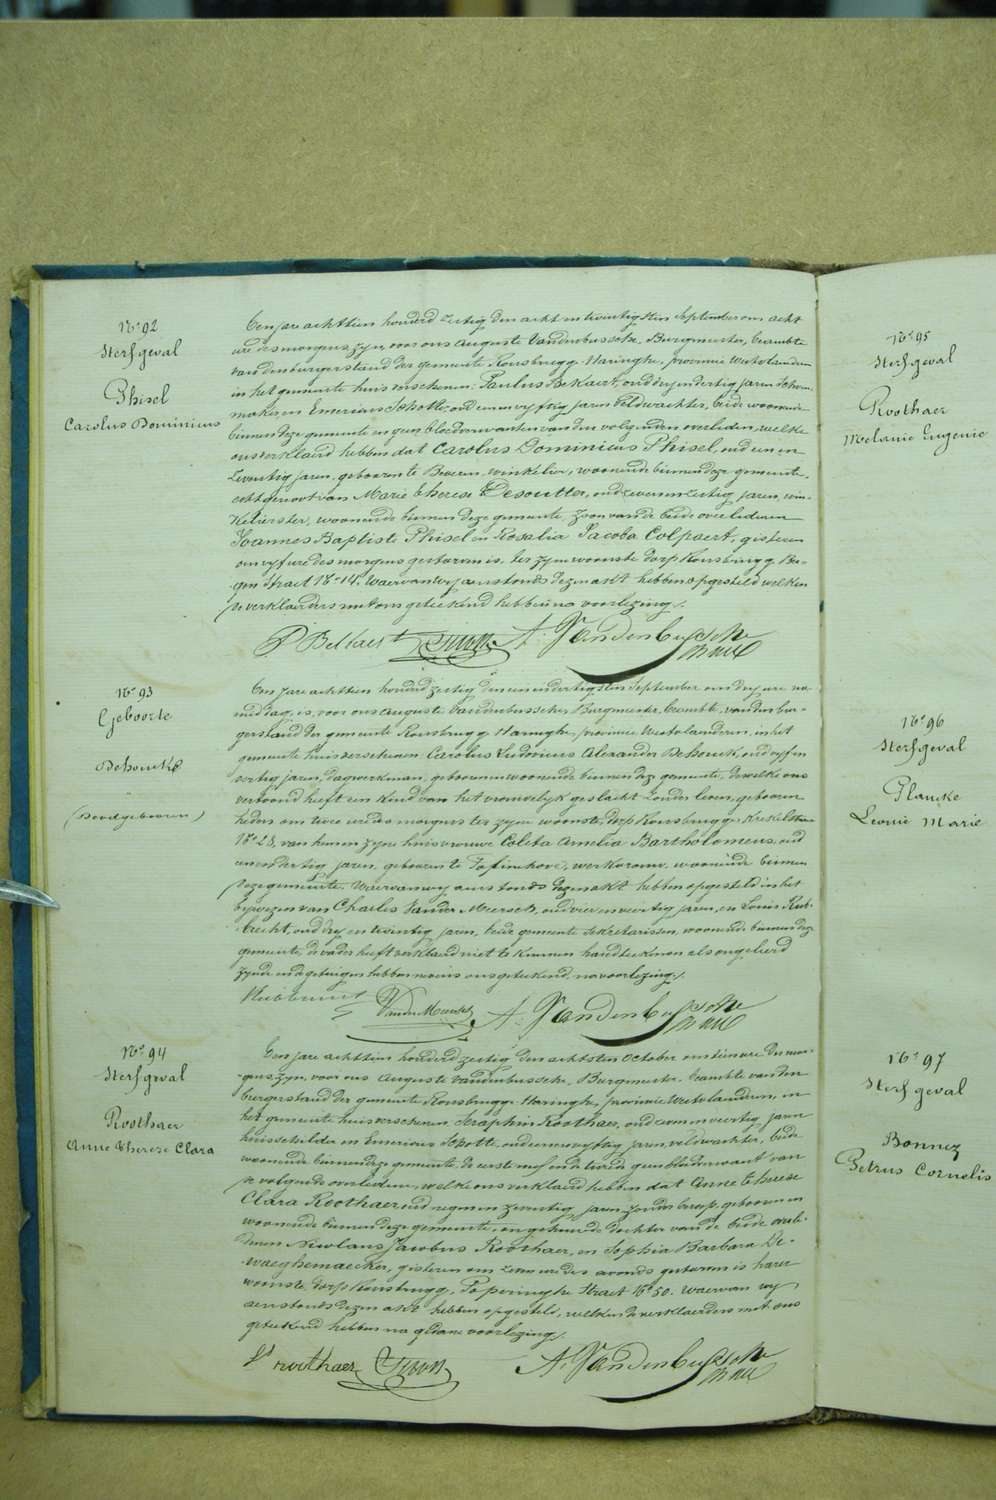 N° 92
Sterfgeval
Phisel
Carolus Dominicus
Een jare achttien honderd zestig den acht en twintigsten September om acht
ure des morgens zyn, voor ons Auguste Vandenbussche, Burgmeester, beambte
van den burgerstand der gemeente Rousbrugge Haringhe, provincie Westvlanderen
in het gemeente huis verschenen: Paulus Bekaert, oud dry en dertig jaren schoen
maker, en Emericus Schotte, oud een en vyftig jaren veldwachter, beide woonende
binnen deze gemeente en geen bloedverwanten van den volgenden overleden, welke
ons verklaerd hebben dat Carolus Dominicus Phisel, oud een en
zeventig jaren, geboren te Beveren, winkelier, woonende binnen deze gemeente,
echtgenoot van Marie Therese Desoutter, oud zeven en zestig jaren, win-
kelierster, woonende binnen deze gemeente, zoon van de beide overledenen
Joannes Baptiste Phisel en Rosalia Jacoba Colpaert, gisteren
om vyf ure des morgens gestorven is, ter zyner woonste dorp Rousbrugg Ber-
gen straet N° 14. Waervan wy aenstonds dezen akt hebben opgesteld welken
de verklaerders met ons geteekend hebben na voorlezing.
P. Bekaert A. Vandenbussche
N° 93
Geboorte
Dehouck
(Doodgeboren)
Een jare achttien honderd zestig den een en dertigsten September om dry ure na-
middag, is, voor ons Auguste Vandenbussche, Burgmeester, beambte van den bur-
gerstand der gemeente Rousbrugg Haringhe, provincie Westvlanderen, in het
gemeente huis verschenen Carolus Ludovicus Alexander Dehouck, oud vyf en
vertig jaren, dagwerkman, geboren en woonende binnen deze gemeente, dewelke ons
vertoond heeft een kind van het vrouwelyk geslacht zonder leven, geboren
heden om twee ure des morgens ter zyner woonste, dorp Rousbrugge
N° 28, van hem en zyne huisvrouwe Coleta Amelia Bartholomeus, oud
een en dertig jaren, geboren te , werkvrouw, woonende binnen
deze gemeente. Waervan wy aenstonds dezen akt hebben opgesteld in het
bywezen van Charles Vander Meersch, oud vier en veertig jaren, en Louis Rub-
brecht, oud dry en twintig jaren, beide gemeente sekretarissen, woonende binnen deze
gemeente, de vader heeft verklaerd niet te kunnen handteekenen als ongeleerd
zynde en de getuigen hebben nevens ons geteekend, na voorlezing.
VanderMeersch A. Vandenbussche
N° 94
Sterfgeval
Roothaer
Anne Therese Clara
Een jare achttien honderd zestig den achtsten October om tien ure des mor-
gens zyn, voor ons Auguste Vandenbussche, Burgmeester, beambte van den
burgerstand der gemeente Rousbrugge Haringhe, provincie Westvlanderen, in
het gemeente huis verschenen Seraphin Roothaer, oud zeven en veertig jaren
huisschilder en Emericus Schotte oud een en vyftig jaren, veldwachter, beide
woonende binnen deze gemeente, de eerste neef en de tweede geen bloedverwant van
de volgende overledene, welke ons verklaerd hebben dat Anne Therese
Clara Roothaer oud negen en zeventig jaren, zonder beroep, geboren en
woonende binnen deze gemeente, ongehuwde dochter van de beide overle-
denen Nicolaus Jacobus Roothaer, en Sophia Barbara De-
waeghemaecker, gisteren om zes ure des avonds gestorven is, harer
woonste dorp Rousbrugg, Poperinghe straet N° 50. Waervan wy
aenstonds dezen akt hebben opgesteld, welken de verklaerders met ons
geteekend hebben na gedane voorlezing.
Sn roothaer A. Vandenbussche
N° 95
Sterfgeval
Roothaer
Melanie Eugenie
N° 96
Sterfgeval
Plancke
Leonie Marie
N° 97
Sterfgeval
Bonnez
Petrus Cornelis